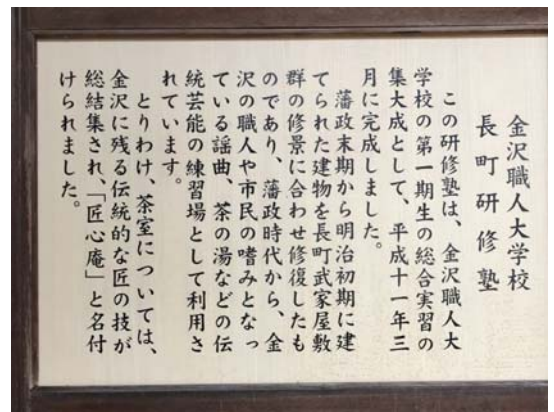 金沢職人大学校
長町研修塾
この研修塾は、金沢職人大
学校の第一期生の総合実習の
集大成として、平成十一年三
月に完成しました。
藩政末期から明治初期に建
てられた建物を長町武家屋敷
群の修景に合わせ修復したも
のであり、藩政時代から、金
沢の職人や市民の嗜みとなっ
ている謡曲、茶の湯などの伝
統芸能の練習場として利用さ
れています。
とりわけ、茶室については、
金沢に残る伝統的な匠の技が
総結集され、「匠心庵」と名付
けられました。